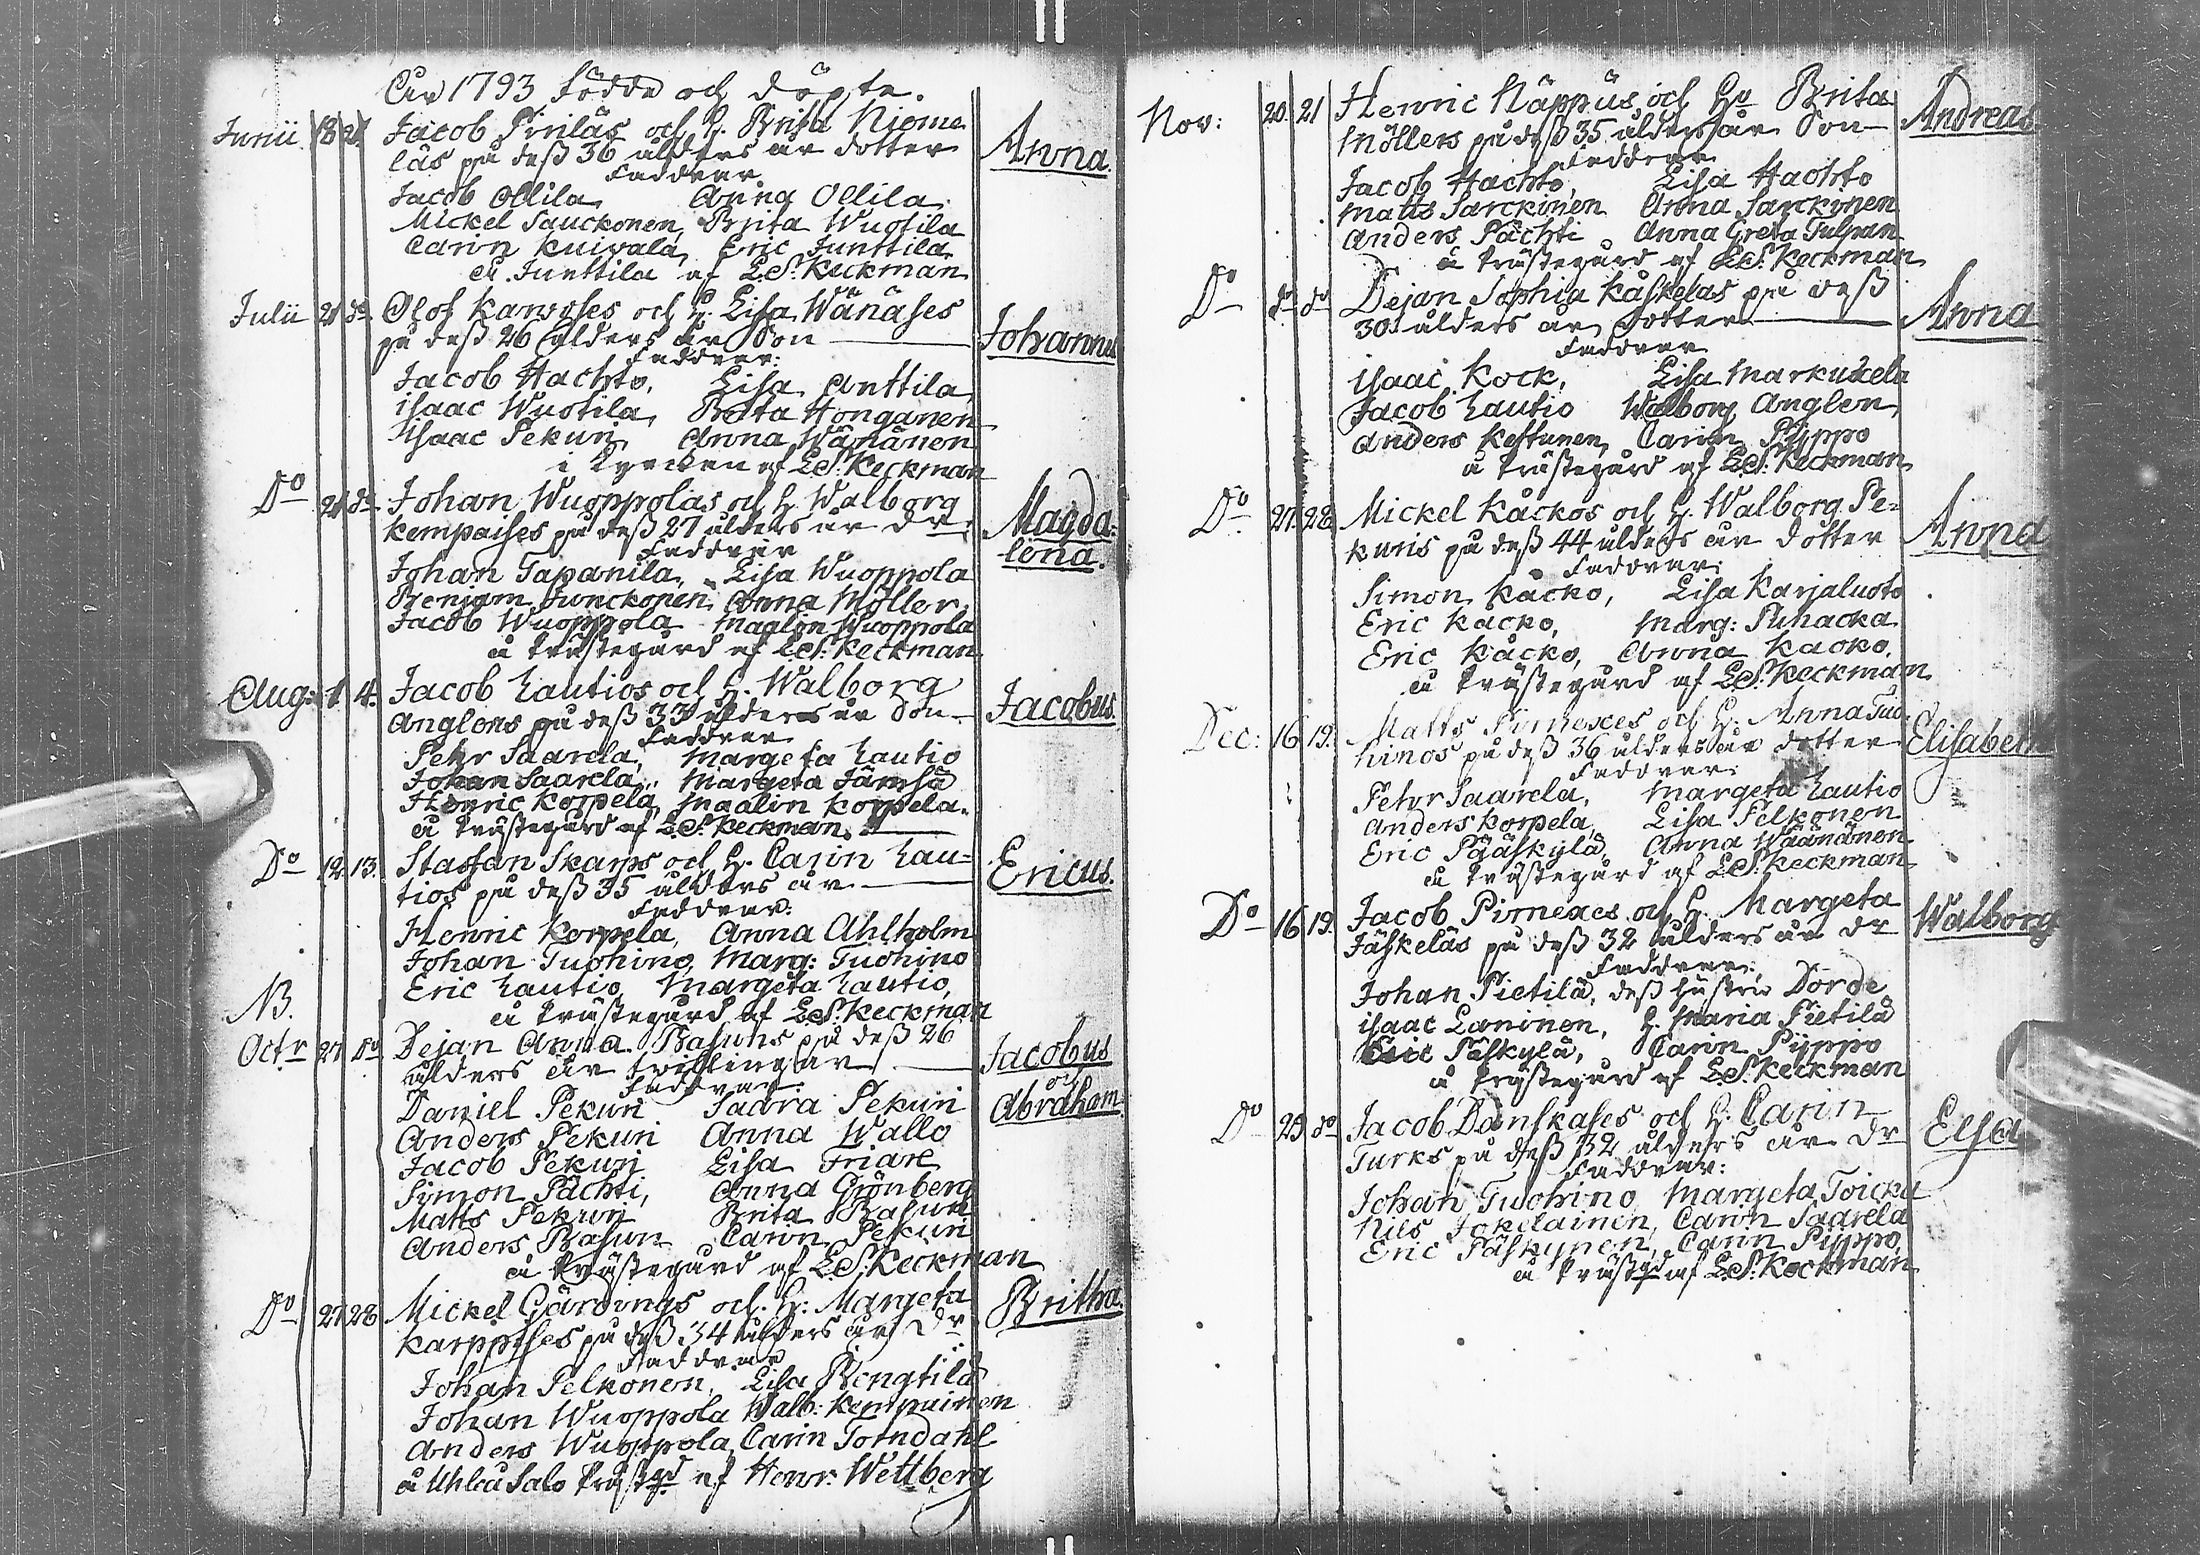 År 1793 födde och döpte.
Junii 18 21 Jacob Pirilas och H. Brita Nieme
läs på deß 36 ålders år dotter Anna.
Faddrar
Jacob Ollila Anna Ollila
Mickel Sauckonen, Brita Wuotila
Carin Kuivala, Eric Junttila
å Junttila af E.S. Keckman
Julii 21 do Olof Karvoses och H. Lisa Wänäses
på deß 26 ålders år Son Johannes
Faddrar:
Jacob Hachto, Lisa Anttila
Isaac Wuotila, Brita Honganen
Isaac Pekuri, Anna Wänänen
i Kyrckan af E.S. Keckman
Do 21 do Johan Wuoppolas och H. Walborg
Kempaises på deß 27 ålders år dr Magda:
lena.
Faddrar
Johan Tapanila, Lisa Wuoppola
Benjam. Junckonen, Anna Möller,
Jacob Wuoppola Maalin Wuoppola
å Prästegård af E.S. Keckman
Aug: 1 4. Jacob Lautios och H. Walborg
Anglens på deß 33 ålders år Son Jacobus.
Faddrar
Pehr Saarela, Margeta Lautio
Johan Saarela, Margeta Jämsä
Henric Korpela, Maalin Korpela.
å Prästegård af E.S. Keckman.
Do 12 13. Staffan Skarps och H. Carin Lau=
tios på deß 35 ålders år Ericus.
Faddrar:
Henric Korpela, Anna Ahlholm
Johan Tuohino, Marg: Tuohino
Eric Lautio, Margeta Lautio,
NB. å Prästegård af E.S. Keckman
Octr 27 do Dejan Anna Basuns på deß 26
ålders år tvillingar Jacobus
och
Faddrar:
Daniel Pekuri Saara Pekuri Abraham
Anders Pekuri Anna Wallo
Jacob Pekuri Lisa Friare
Simon Pächti, Anna Grönberg
Matts Pekuri Brita Basun
Anders Basun Carin Pekuri
å Prästegård af E.S. Keckman
Do 27 28 Mickel Gärdings och H: Margeta
Karppises på deß 34 ålders år Dr Britha.
Faddrar
Johan Pelkonen, Lisa Bengtilä
Johan Wuoppola Walb: Kempainen
Anders Wuoppola, Carin Torndahl
å Uhleå Salo Prästgd af Henr: Wettberg
Nov: 20 21 Henric Näppus och Hu Brita
Möllers på deß 35 ålders år Son Andreas
Faddrar
Jacob Hachto, Lisa Hachto
Matts Sarckinen Anna Sarckinen
Anders Pächti Anna Greta Tulpan
å Prästegård af E.S. Keckman
Do do do Dejan Sophia Kåskelas på deß
30 ålders år dotter Anna
Faddrar
Isaac Kock, Lisa Markuxela
Jacob Lautio Walborg Anglen,
Anders Kettunen, Carin Pyppo
å Prästegård af E.S. Keckman
Do 27. 28. Mickel Kåckos och H. Walborg Pe=
kuris på deß 44 ålders år dotter Anna
Faddrar:
Simon Kåcko, Lisa Karjaluoto
Eric Kåcko, Marg: Puhacka
Eric Kåcko, Anna Kacko.
å Prästegård af E.S. Keckman
Dec: 16 19. Matts Pirnexes och H. Anna Tuo-
hinos på deß 36 ålders år dotter Elisabeth
Faddrar:
Pehr Saarela, Margeta Lautio
Anders Korpela, Lisa Pelkonen
Eric Pääskylä, Anna Wäänänen
å Prästegård af E.S. Keckman
Do 16 19. Jacob Pirnexes och H. Margeta
Jäskeläs på deß 32 ålders år dr Walborg
Faddrar:
Johan Pietilä, deß hustru Dorde
Isaac Laninen, H. Maria Pietilä
Eric Päskylä, Carin Pyppo
å Prästegård af E.S. Keckman
Do 29 do Jacob Danskases och H. Carin
Turks på deß 32 ålders år Dr Elsa
Faddrar:
Johan Tuohino, Margeta Toicka
Nils Jokelainen, Carin Saarela
Eric Päskynen, Carin Pyppo,
å Prästgd af E.S. Keckman